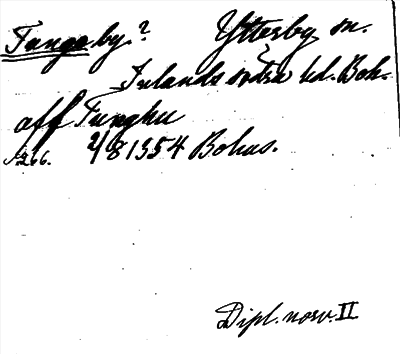 Tunge by? Ytterby sn.
Inlands södra hd. Boh.
aff Tunghu
s. 266. 2/8 1354 Bohus.
Dipl. norv. II